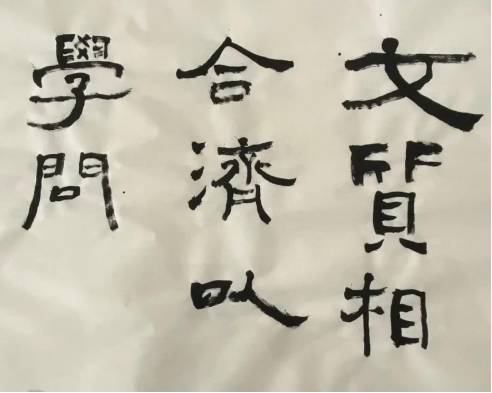 文質相
合濟以
學問